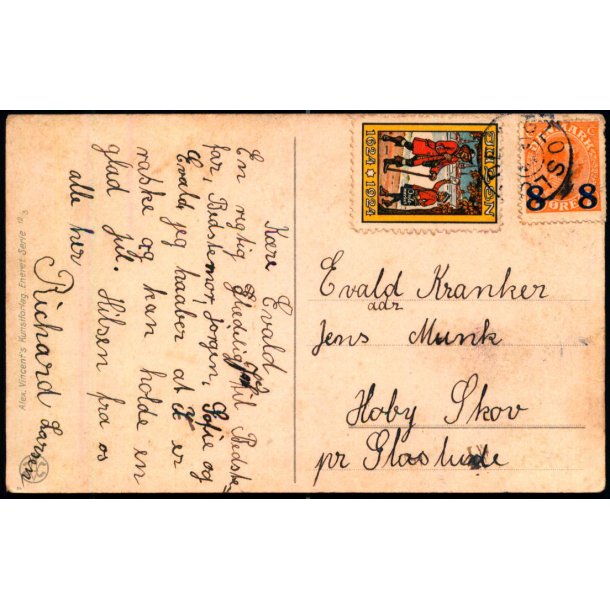 Kære Evald
En rigtig Glædelig Jul til Bedste
far, Bedstemor, Jørgen, Sofie og
Evald, jeg haaber at I er
raske og kan holde en
glad Jul. Hilsen fra os
alle her
Richard Larsen
1624 ★ 1924
JULEN
DANMARK
8 8
ØRE
Evald Kranker
adr
Jens Munk
Hoby Skov
pr Glaslunde
Alex. Vincent's Kunstforlag. Eneret Serie